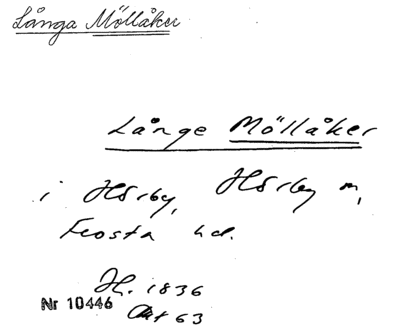 Långa Möllåker
Långe Möllåker
i Hörby, Hörby m,
Frosta hd.
H. 1836
Nr 10446
Akt 63